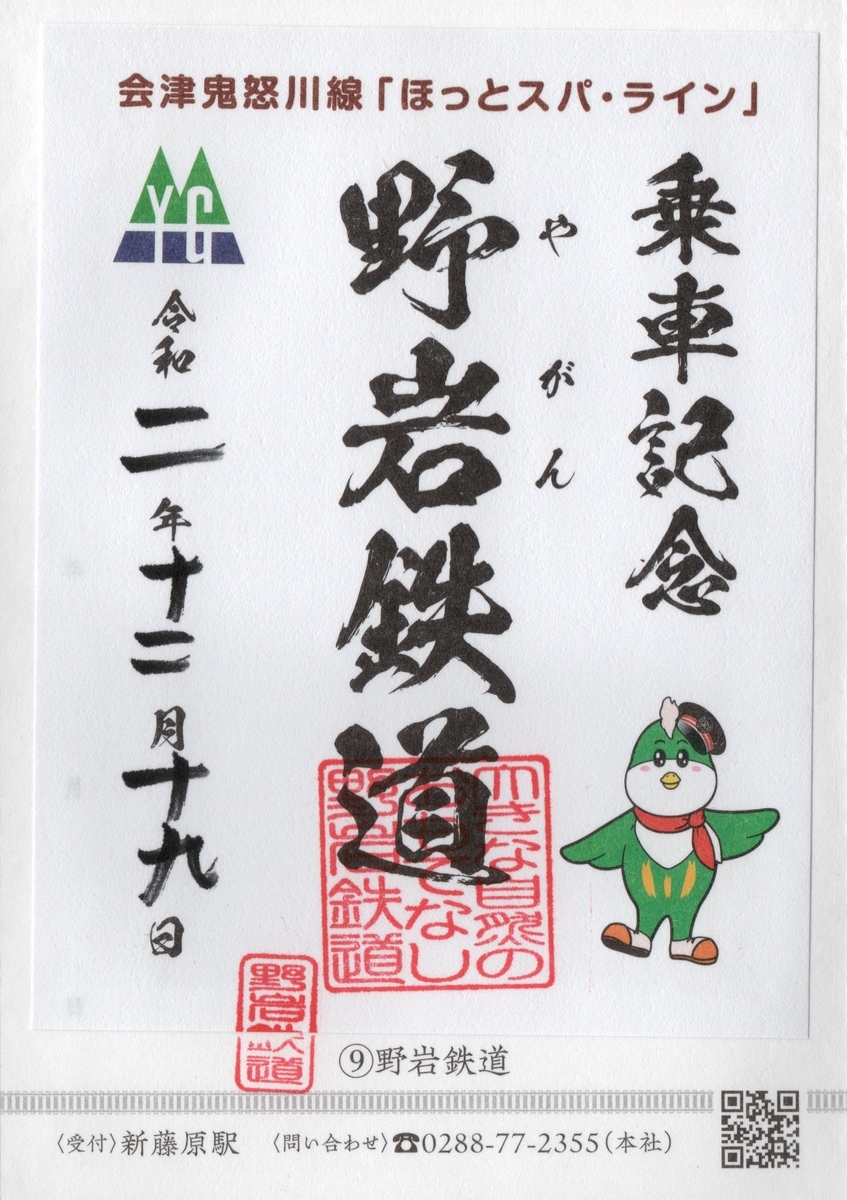 会津鬼怒川線「ほっとスパ・ライン」
乗車記念
やがん
野岩鉄道
YG
令和二年十二月十九日
大きな自然の
おもてなし
野岩鉄道
野岩鉄道
⑨野岩鉄道
〈受付〉新藤原駅 〈問い合わせ〉☎0288-77-2355(本社)